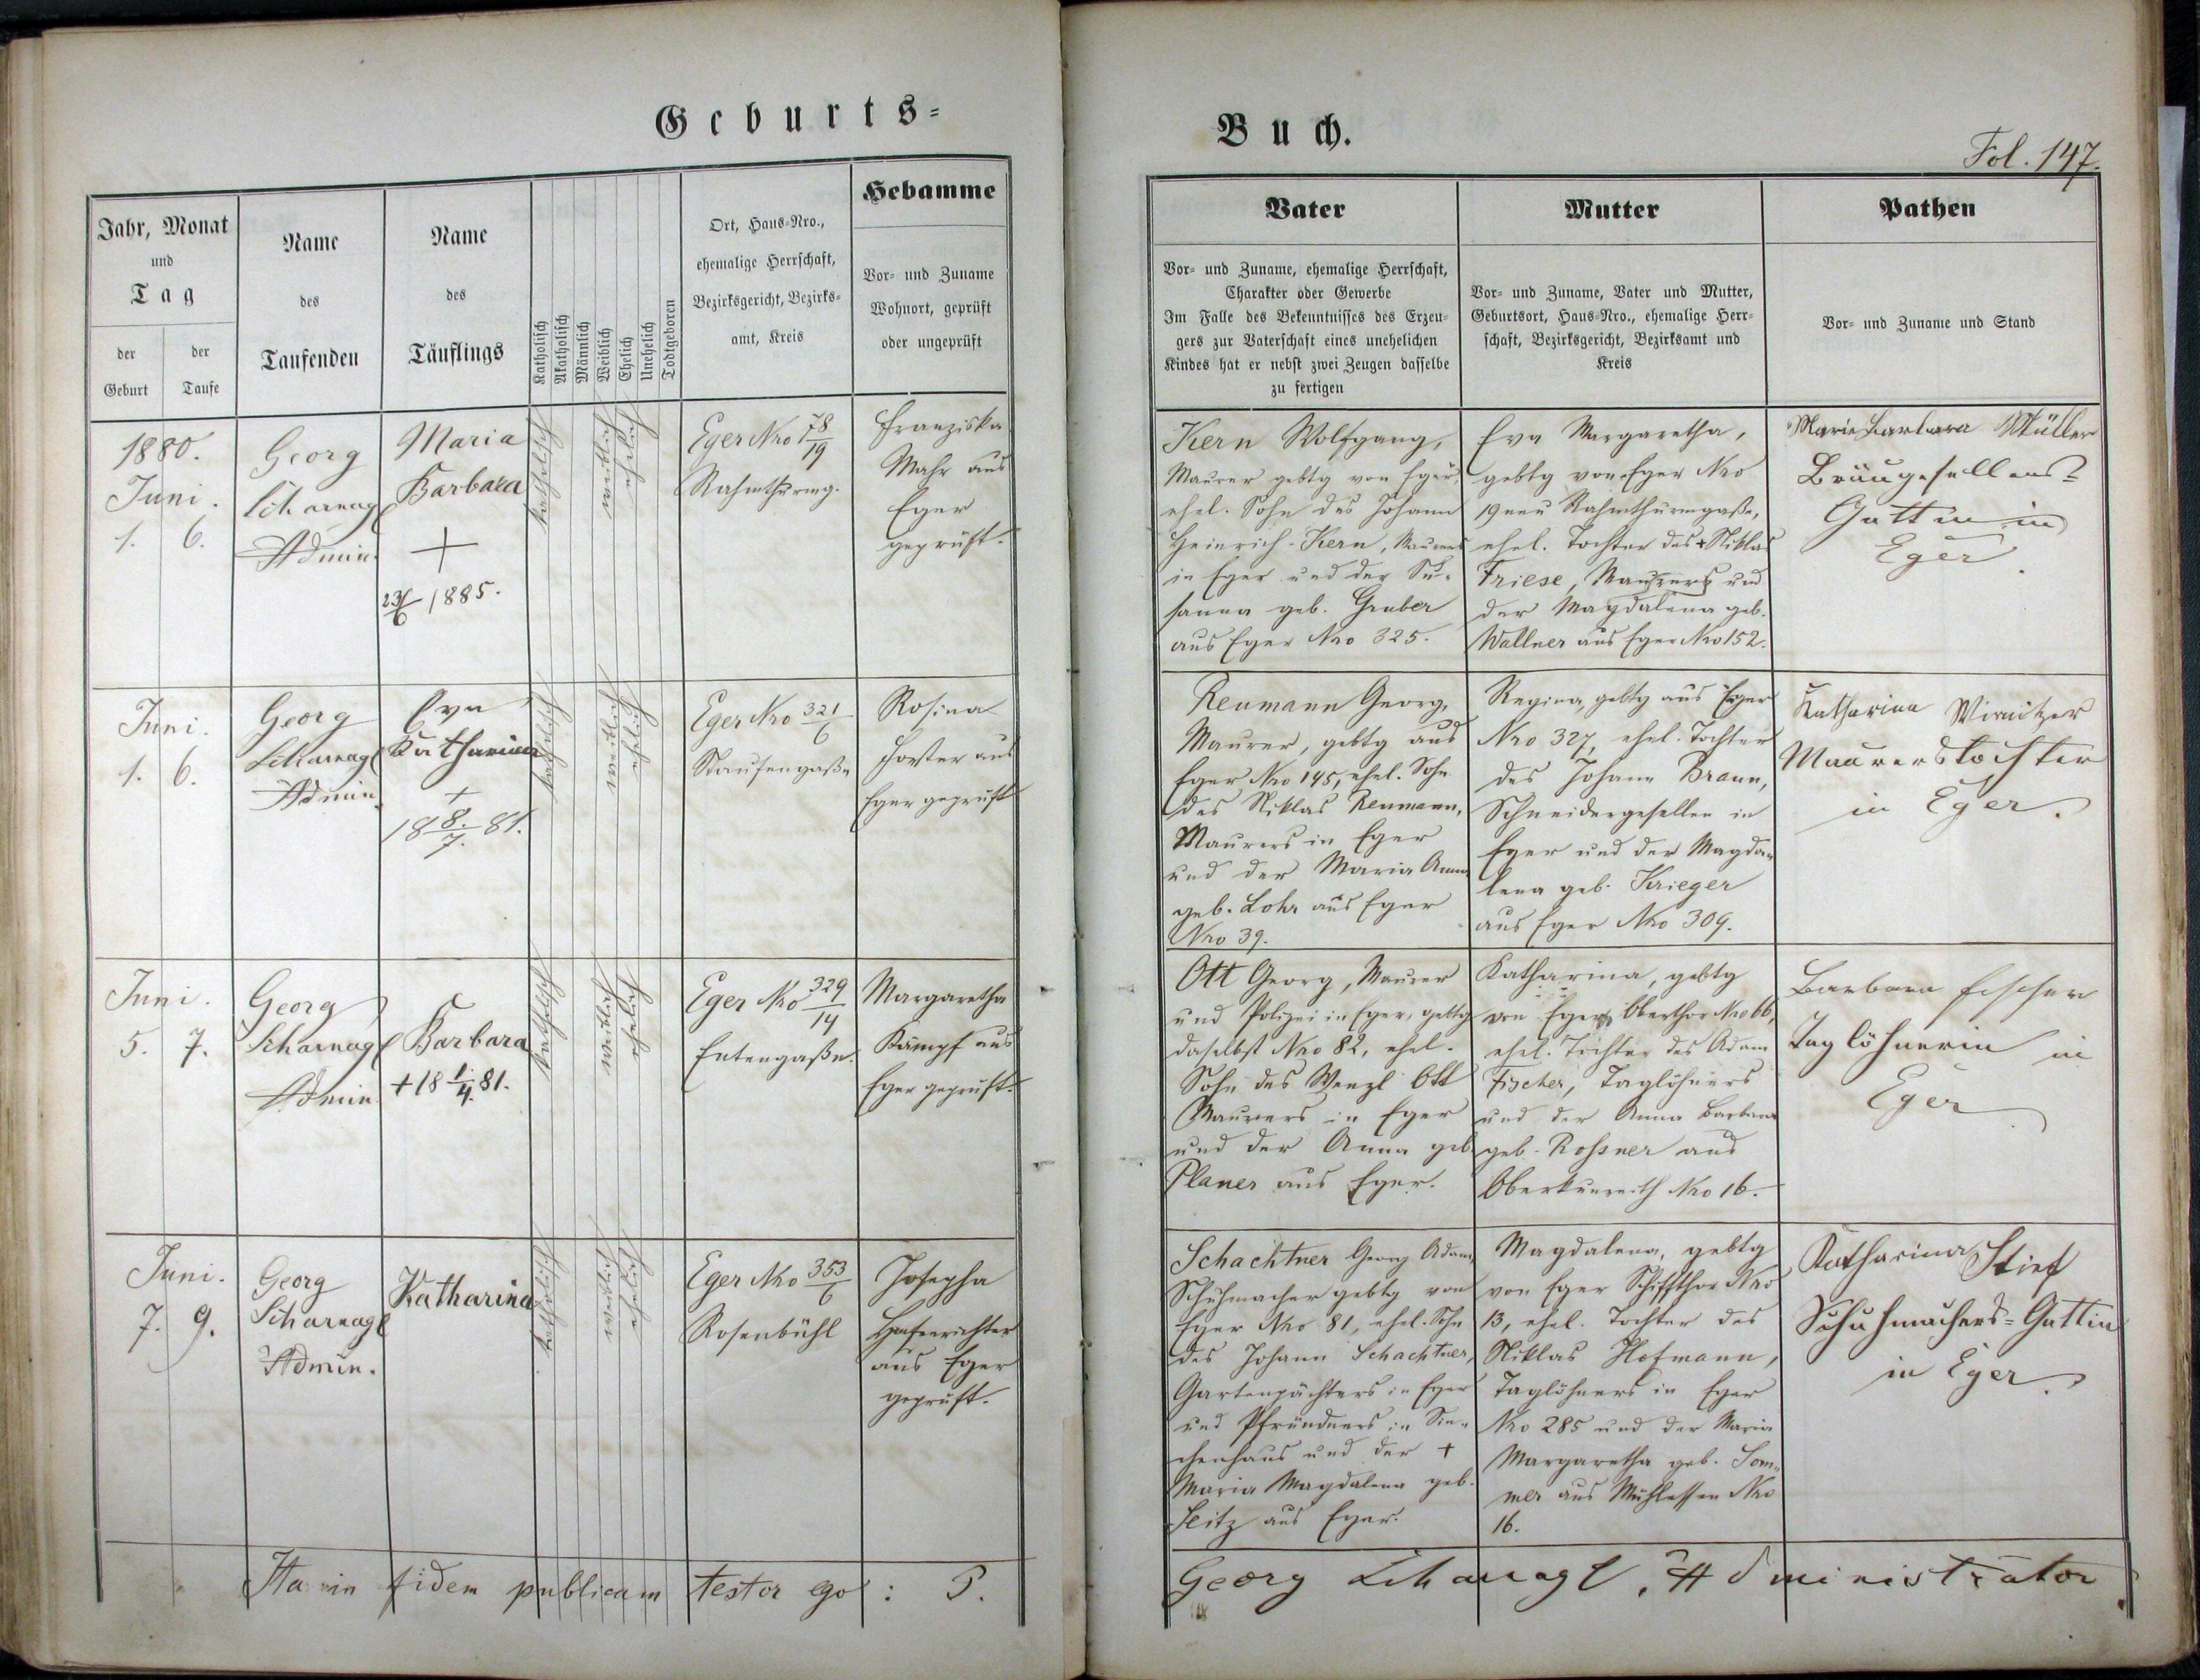 Geburts-
Buch.
Fol. 147.
Jahr, Monat
und
Tag
der
Geburt
der
Taufe
Name
des
Taufenden
Name
des
Täuflings
Katholisch
Akatholisch
Männlich
Weiblich
Ehelich
Unehelich
Todtgeboren
Ort, Haus-Nro.,
ehemalige Herrschaft,
Bezirksgericht, Bezirks-
amt, Kreis
Hebamme
Vor- und Zuname
Wohnort, geprüft
oder ungeprüft
Vater
Vor- und Zuname, ehemalige Herrschaft,
Charakter oder Gewerbe
Im Falle des Bekenntnisses des Erzeu-
gers zur Vaterschaft eines unehelichen
Kindes hat er nebst zwei Zeugen dasselbe
zu fertigen
Mutter
Vor- und Zuname, Vater und Mutter,
Geburtsort, Haus-Nro., ehemalige Herr-
schaft, Bezirksgericht, Bezirksamt und
Kreis
Pathen
Vor- und Zuname und Stand
1880.
Juni.
1. 6.
Georg
Scharnagl
Admin.
Maria
Barbara
+
23/6 1885.
katholisch
weiblich
ehelich
Eger Nro 78/19
Rahmthurmg.
Franziska
Mahr aus
Eger
geprüft.
Kern Wolfgang,
Maurer gebtg von Eger,
ehel. Sohn des Johann
Heinrich Kern, Maurers
in Eger und der Su-
sanna geb. Gruber
aus Eger Nro 325.
Eva Margaretha,
gebtg von Eger Nro
19 neu Rahmthurmgaße,
ehel. Tochter des + Niklas
Friese, Maurers und
der Magdalena geb.
Wallner aus Eger Nro 152.
Maria Barbara Müller
Bräugesellens-
Gattin in
Eger.
Juni.
1. 6.
Georg
Scharnagl
Admin.
Eva
Katharina
+
18 8./7. 81.
katholisch
weiblich
ehelich
Eger Nro 321/6
Staufengaße
Rosina
Forster aus
Eger geprüft
Reumann Georg,
Maurer, gebtg aus
Eger Nro 145, ehel. Sohn
des Niklas Reumann,
Maurers in Eger
und der Maria Anna
geb. Lohr aus Eger
Nro 39.
Regina, gebtg aus Eger
Nro 327, ehel. Tochter
des Johann Braun,
Schneidergesellen in
Eger und der Magda-
lena geb. Krieger
aus Eger Nro 309.
Katharina Wirnitzer
Maurerstochter
in Eger.
Juni.
5. 7.
Georg
Scharnagl
Admin.
Barbara
+ 18 1./4. 81.
katholisch
weiblich
ehelich
Eger Nro 329/14
Entengaße.
Margaretha
Kämpf aus
Eger geprüft.
Ott Georg, Maurer
und Polizei in Eger, gebtg
daselbst Nro 82, ehel.
Sohn des Wenzl Ott
Maurers in Eger
und der Anna geb.
Planer aus Eger.
Katharina, gebtg
von Eger Oberthor Nro 66,
ehel. Tochter des Adam
Fischer, Taglöhners
und der Anna Barbara
geb. Roßner aus
Oberkunreith Nro 16.
Barbara Fischer
Taglöhnerin in
Eger
Juni.
7. 9.
Georg
Scharnagl
Admin.
Katharina
katholisch
weiblich
ehelich
Eger Nro 353/6
Rosenbühl
Josepha
Hafenrichter
aus Eger
geprüft.
Schachtner Georg Adam,
Schuhmacher gebtg von
Eger Nro 81, ehel. Sohn
des Johann Schachtner,
Gartenpächters in Eger
und Pfründners in Sie-
chenhaus und der +
Maria Magdalena geb.
Seitz aus Eger.
Magdalena, gebtg
von Eger Schiffthor Nro
13, ehel. Tochter des
Niklas Hofmann,
Taglöhners in Eger
Nro 285 und der Maria
Margaretha geb. Som-
mer aus Mühlessen Nro
16.
Katharina Stief
Schuhmachers-Gattin
in Eger.
Ita in fidem publicam testor ego: P.
Georg Scharnagl, Administrator.